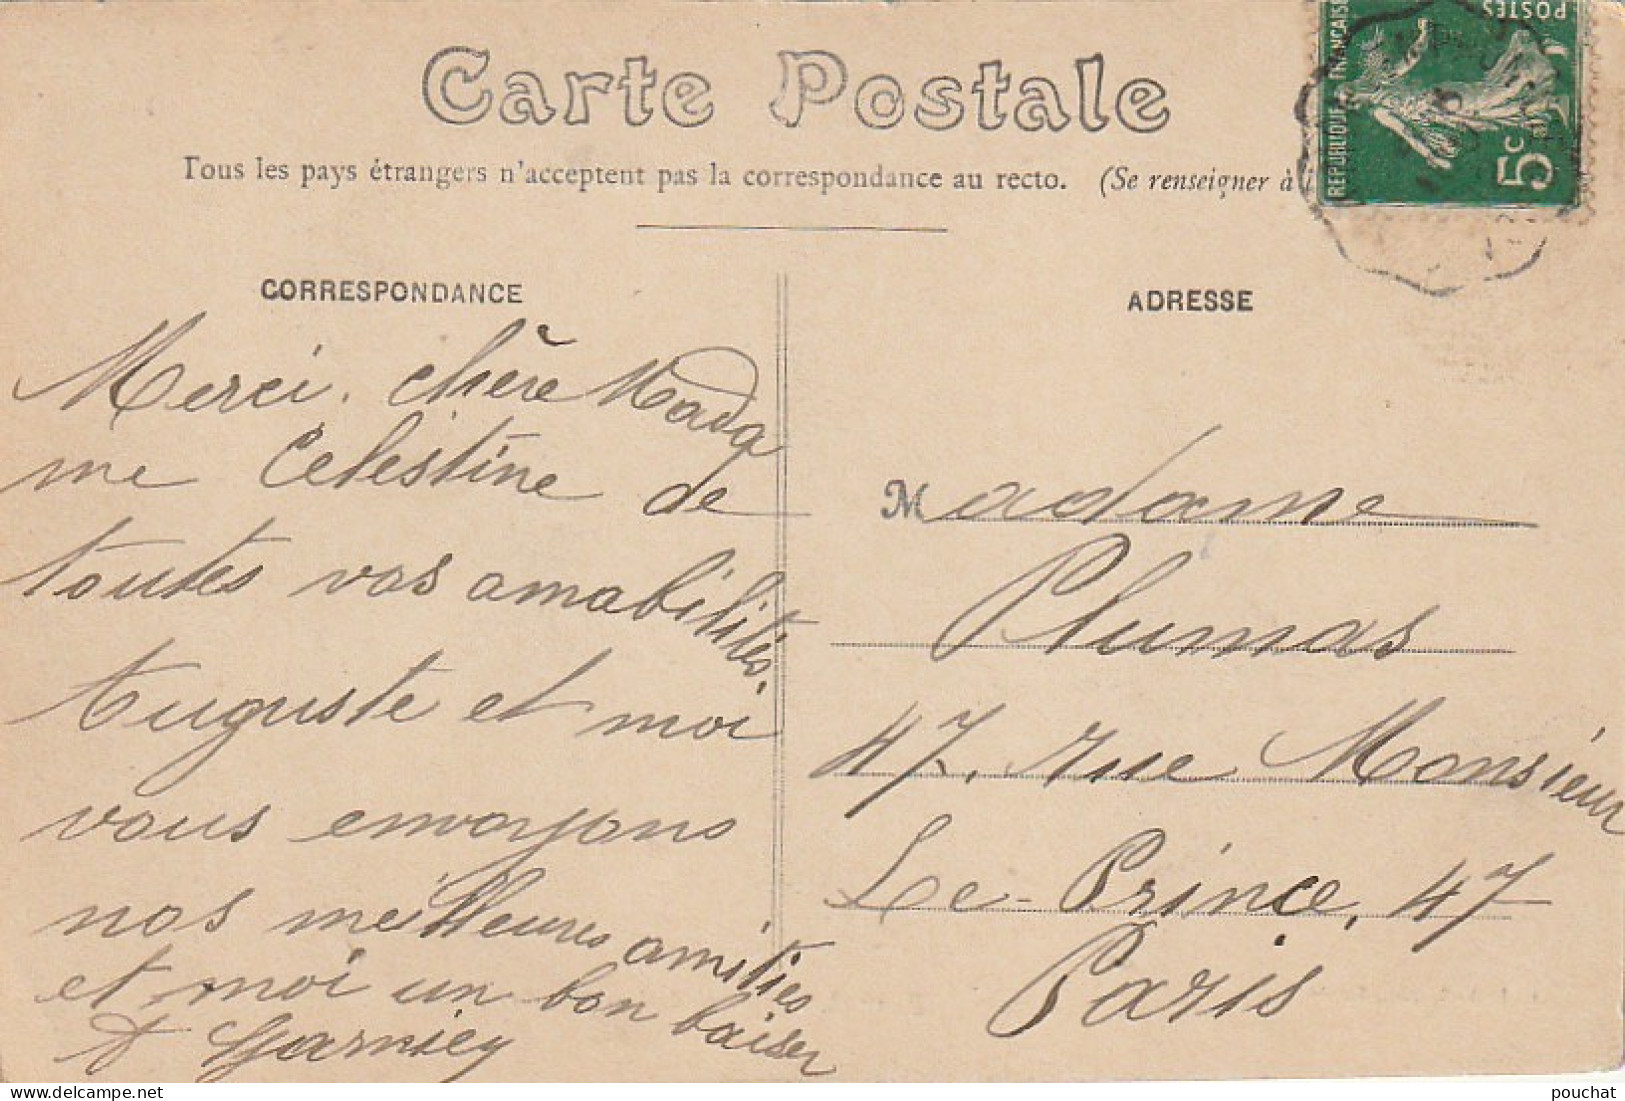 Carte Postale
Tous les pays étrangers n'acceptent pas la correspondance au recto. (Se renseigner à
RÉPUBLIQUE FRANÇAISE
POSTES
5c
CORRESPONDANCE
Merci. chère Mada
me Celestine de
toutes vos amabilités.
Auguste et moi
vous envoyons
nos meilleures amitiés
et moi un bon baiser
Garnier
ADRESSE
Madame
Plumas
47, rue Monsieur
Le-Prince, 47
Paris
pouchat